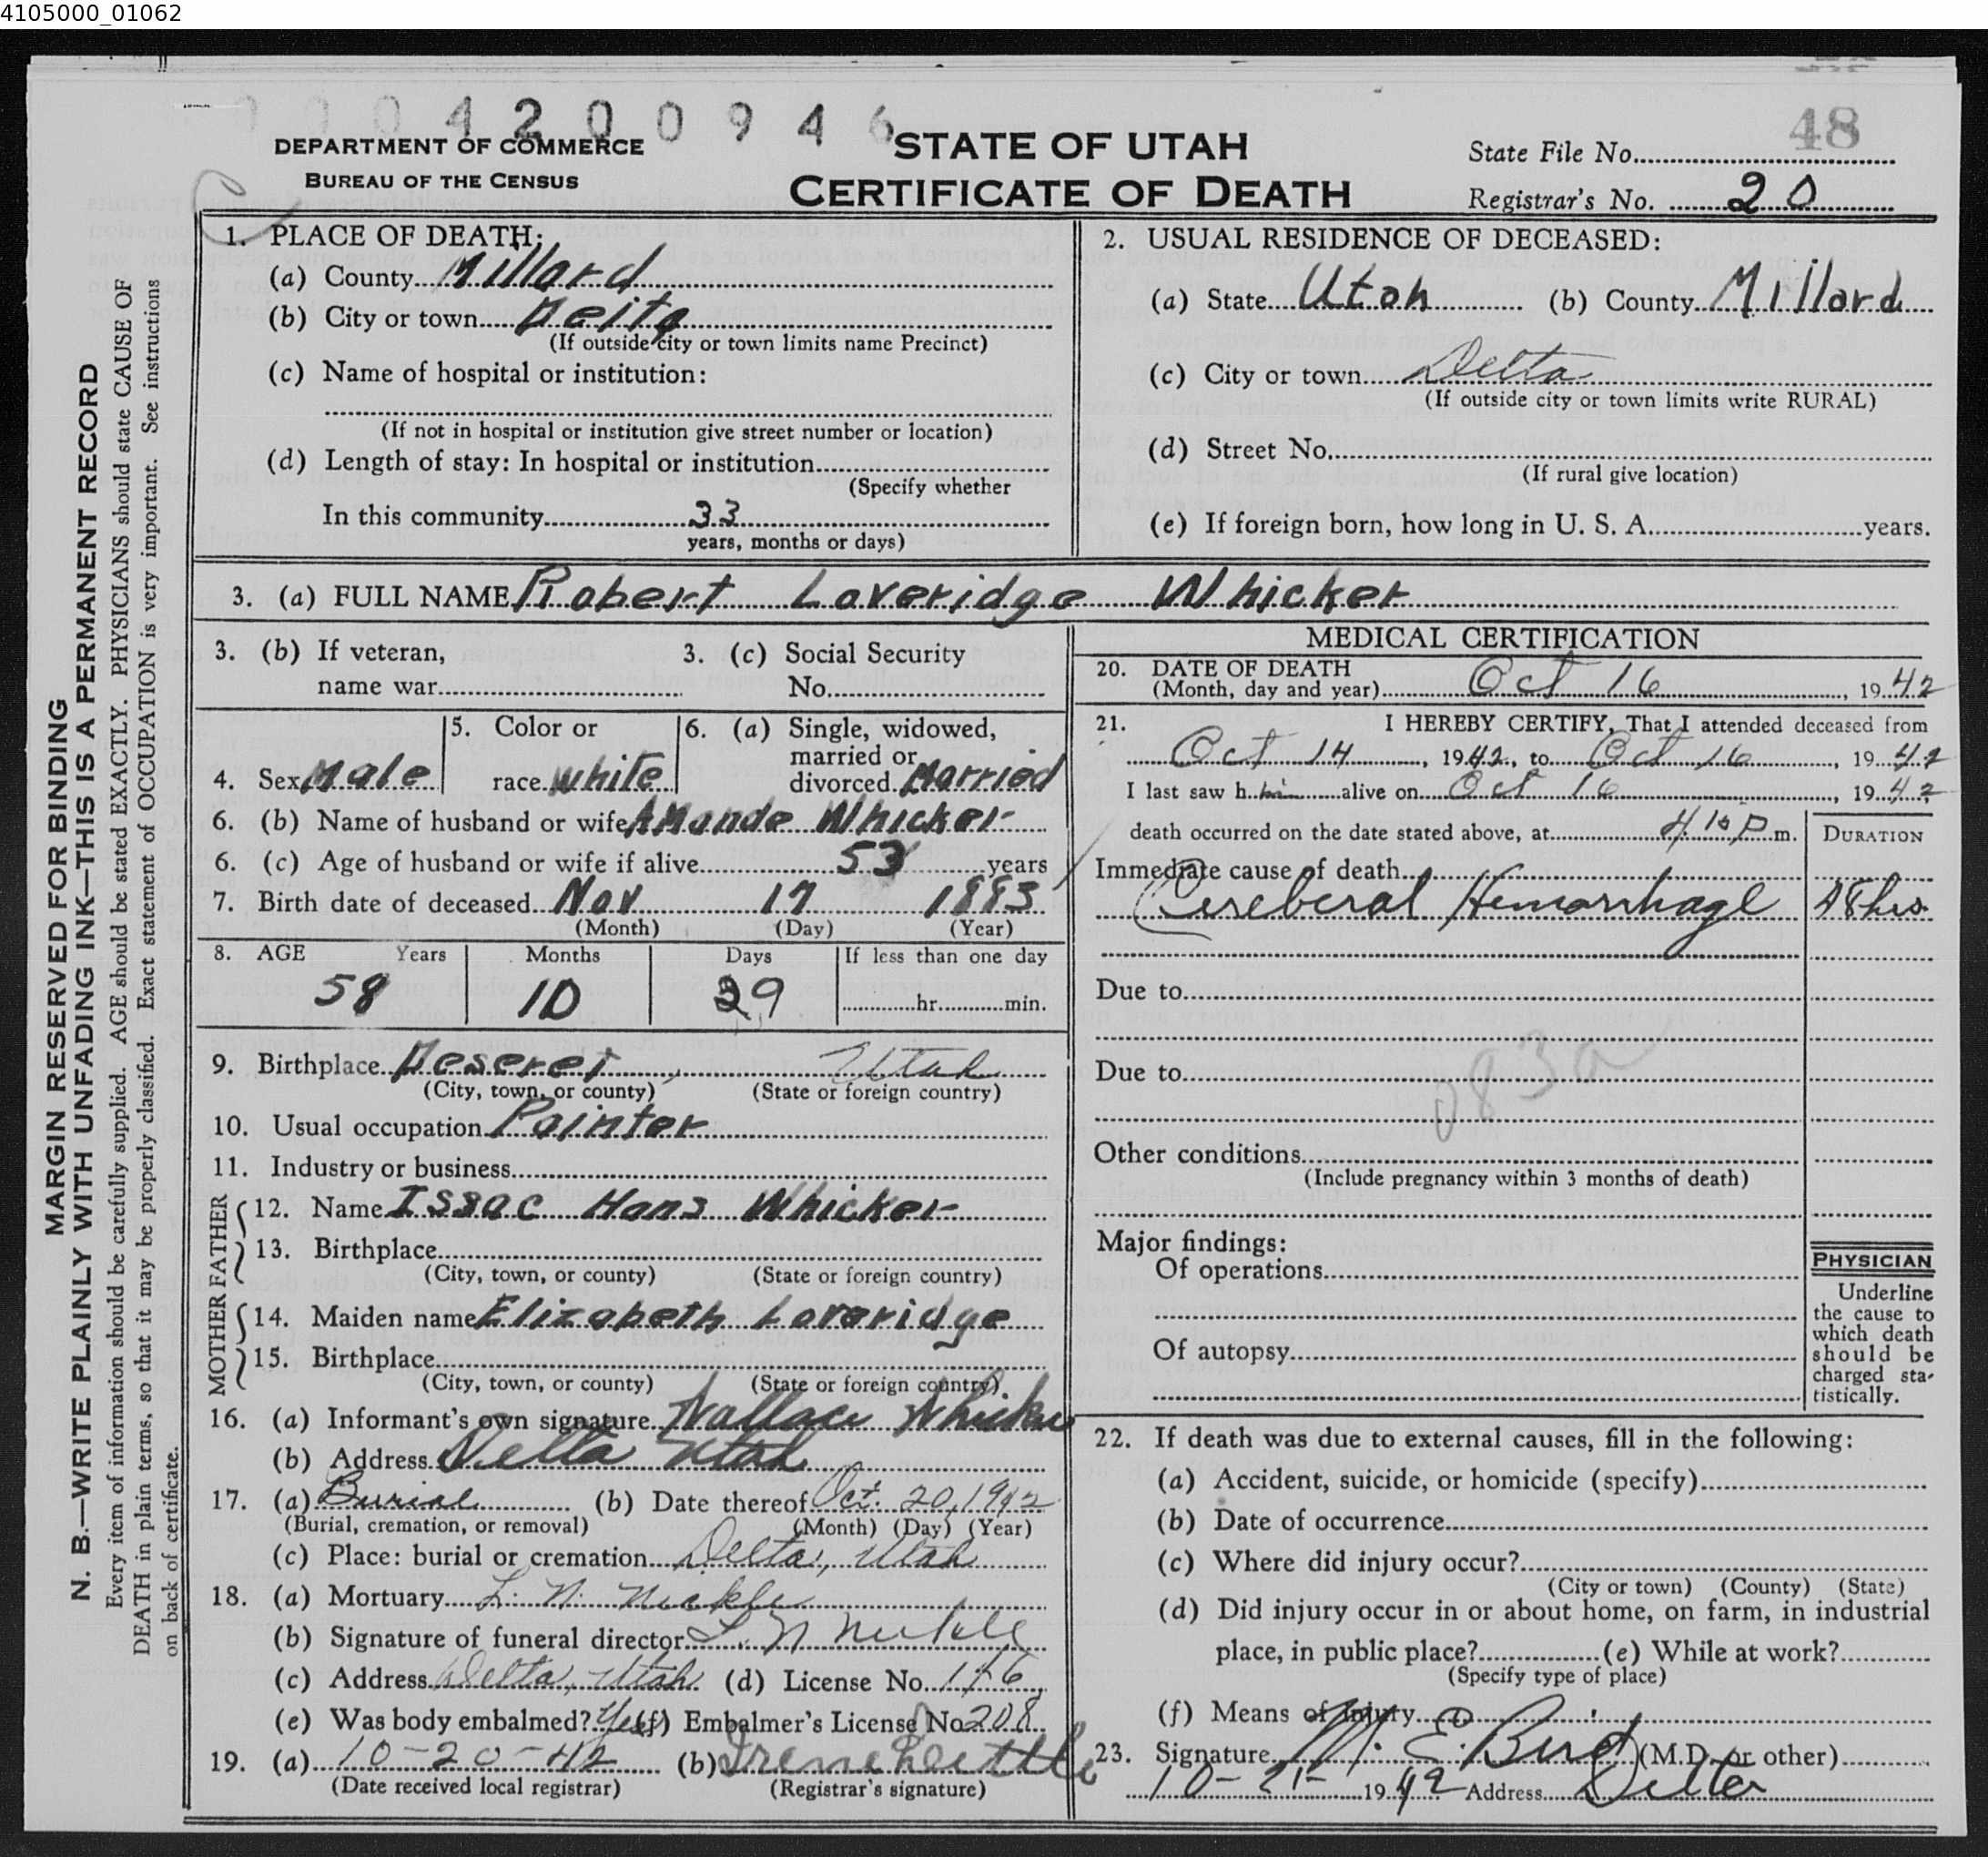 4105000_01062
0 0 0 4 2 0 0 9 4 6
48
DEPARTMENT OF COMMERCE
BUREAU OF THE CENSUS
STATE OF UTAH
CERTIFICATE OF DEATH
State File No.
Registrar's No. 20
MARGIN RESERVED FOR BINDING
N. B.—WRITE PLAINLY WITH UNFADING INK—THIS IS A PERMANENT RECORD
Every item of information should be carefully supplied. AGE should be stated EXACTLY. PHYSICIANS should state CAUSE OF
DEATH in plain terms, so that it may be properly classified. Exact statement of OCCUPATION is very important. See instructions
on back of certificate.
1. PLACE OF DEATH:
(a) County Millard
(b) City or town Delta
(If outside city or town limits name Precinct)
(c) Name of hospital or institution:
(If not in hospital or institution give street number or location)
(d) Length of stay: In hospital or institution
(Specify whether
In this community 33
years, months or days)
2. USUAL RESIDENCE OF DECEASED:
(a) State Utah (b) County Millard
(c) City or town Delta
(If outside city or town limits write RURAL)
(d) Street No.
(If rural give location)
(e) If foreign born, how long in U. S. A. years.
3. (a) FULL NAME Robert Loveridge Whicker
3. (b) If veteran,
name war
3. (c) Social Security
No.
4. Sex Male
5. Color or
race white
6. (a) Single, widowed,
married or
divorced Married
6. (b) Name of husband or wife AManda Whicker
6. (c) Age of husband or wife if alive 53 years
7. Birth date of deceased Nov 17 1883
(Month) (Day) (Year)
8. AGE Years Months Days If less than one day
58 10 29 hr. min.
9. Birthplace Deseret, Utah
(City, town, or county) (State or foreign country)
10. Usual occupation Painter
11. Industry or business
FATHER
12. Name Issac Hans Whicker
13. Birthplace
(City, town, or county) (State or foreign country)
MOTHER
14. Maiden name Elizabeth Loveridge
15. Birthplace
(City, town, or county) (State or foreign country)
16. (a) Informant's own signature Wallace Whicker
(b) Address Delta Utah
17. (a) Burial (b) Date thereof Oct. 20, 1942
(Burial, cremation, or removal) (Month) (Day) (Year)
(c) Place: burial or cremation Delta, Utah
18. (a) Mortuary L. N. Nickle
(b) Signature of funeral director L N Nickle
(c) Address Delta, Utah (d) License No. 146
(e) Was body embalmed? Yes (f) Embalmer's License No. 208
19. (a) 10-20-42 (b) Irene
(Date received local registrar) (Registrar's signature)
MEDICAL CERTIFICATION
20. DATE OF DEATH
(Month, day and year) Oct 16, 1942
21. I HEREBY CERTIFY, That I attended deceased from
Oct 14, 1942, to Oct 16, 1942
I last saw him alive on Oct 16, 1942
death occurred on the date stated above, at 4 10 P m.
DURATION
Immediate cause of death
Cereberal Hemorrhage 48 hrs
Due to
Due to
083a
Other conditions
(Include pregnancy within 3 months of death)
Major findings:
Of operations
Of autopsy
PHYSICIAN
Underline
the cause to
which death
should be
charged sta-
tistically.
22. If death was due to external causes, fill in the following:
(a) Accident, suicide, or homicide (specify)
(b) Date of occurrence
(c) Where did injury occur?
(City or town) (County) (State)
(d) Did injury occur in or about home, on farm, in industrial
place, in public place? (e) While at work?
(Specify type of place)
(f) Means of injury
23. Signature M. E. Bird (M.D. or other)
1942 Address Delta